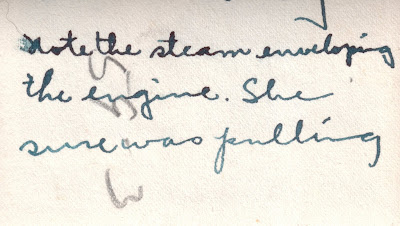 Note the steam enveloping
the engine. She
sure was pulling